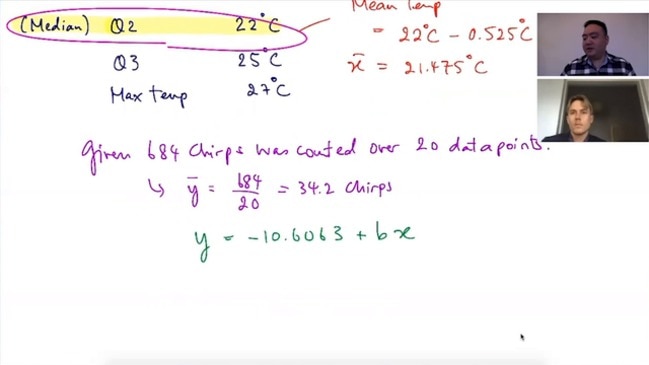 (Median) Q2 22°C
Q3 25°C
Max temp 27°C
Mean Temp
= 22°C - 0.525°C
x̄ = 21.475°C
Given 684 chirps was couted over 20 data points.
↳ ȳ = 684/20 = 34.2 chirps
y = -10.6063 + bx